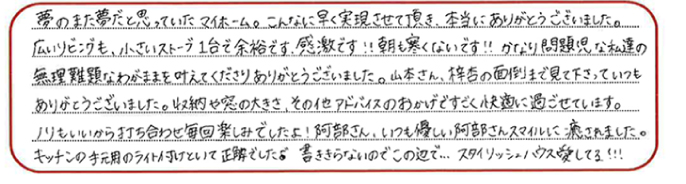 夢のまた夢だと思っていたマイホーム。こんなに早く実現させて頂き、本当にありがとうございました。
広いリビングも、小さいストーブ1台で余裕です。感激です!!朝も寒くないです!!かなり問題児な私達の
無理難題なわがままを叶えてくださりありがとうございました。山本さん、梓音の面倒まで見て下さっていつも
ありがとうございました。収納や窓の大きさ、その他アドバイスのおかげですごく快適に過ごせています。
ノリもいいから打ち合わせ毎回楽しみでしたよ!阿部さん、いつも優しい阿部さんスマイルに癒されました。
キッチンの手元用のライト付けといて正解でした 書ききらないのでこの辺で… スタイリッシュハウス愛してる!!!